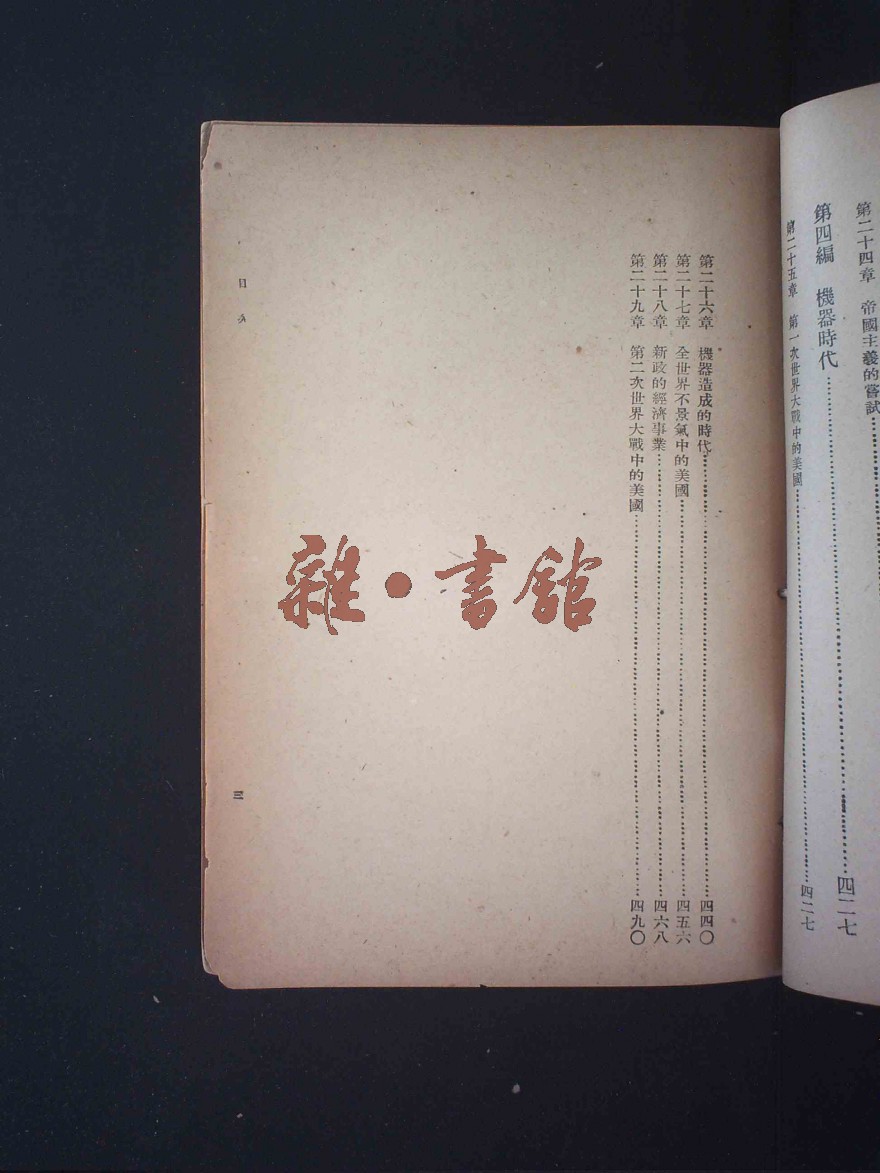 第二十四章　帝國主義的嘗試
第四編　機器時代 四二七
第二十五章　第一次世界大戰中的美國 四二七
第二十六章　機器造成的時代 四四〇
第二十七章　全世界不景氣中的美國 四五六
第二十八章　新政的經濟事業 四六八
第二十九章　第二次世界大戰中的美國 四九〇
目次
三
雜·書館